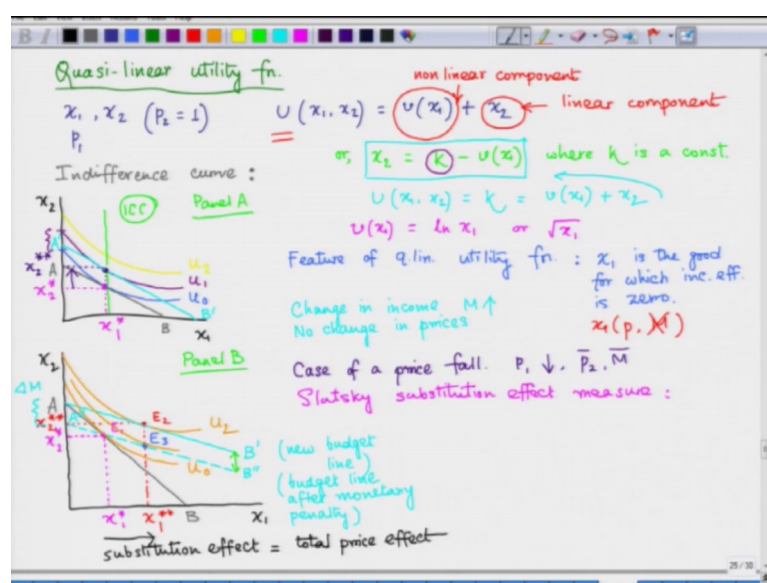 Quasi-linear utility fn.
non linear component
x₁, x₂ (P₂ = 1)
U (x₁, x₂) = v(x₁) + x₂ ← linear component
P₁
or, x₂ = K - v(x₁) where k is a const.
Indifference curve :
U (x₁, x₂) = K = v(x₁) + x₂
v(x₁) = ln x₁ or √x₁
x₂
ICC
Panel A
A'
x₂**
A
x₂*
U₂
U₁
U₀
B'
x₁*
B
x₁
Feature of q.lin. utility fn. : x₁ is the good
for which inc. eff.
is zero.
x₁(p, M)
Change in income M↑
No change in prices
x₂
Panel B
Case of a price fall. P₁ ↓, P̄₂, M̄
Slutsky substitution effect measure :
ΔM
A
A''
x₂**
x₂*
E₁
E₂
E₃
U₂
U₀
B'
B''
(new budget
line)
(budget line
after monetary
penalty)
x₁*
x₁**
B
x₁
substitution effect = total price effect
25 / 30